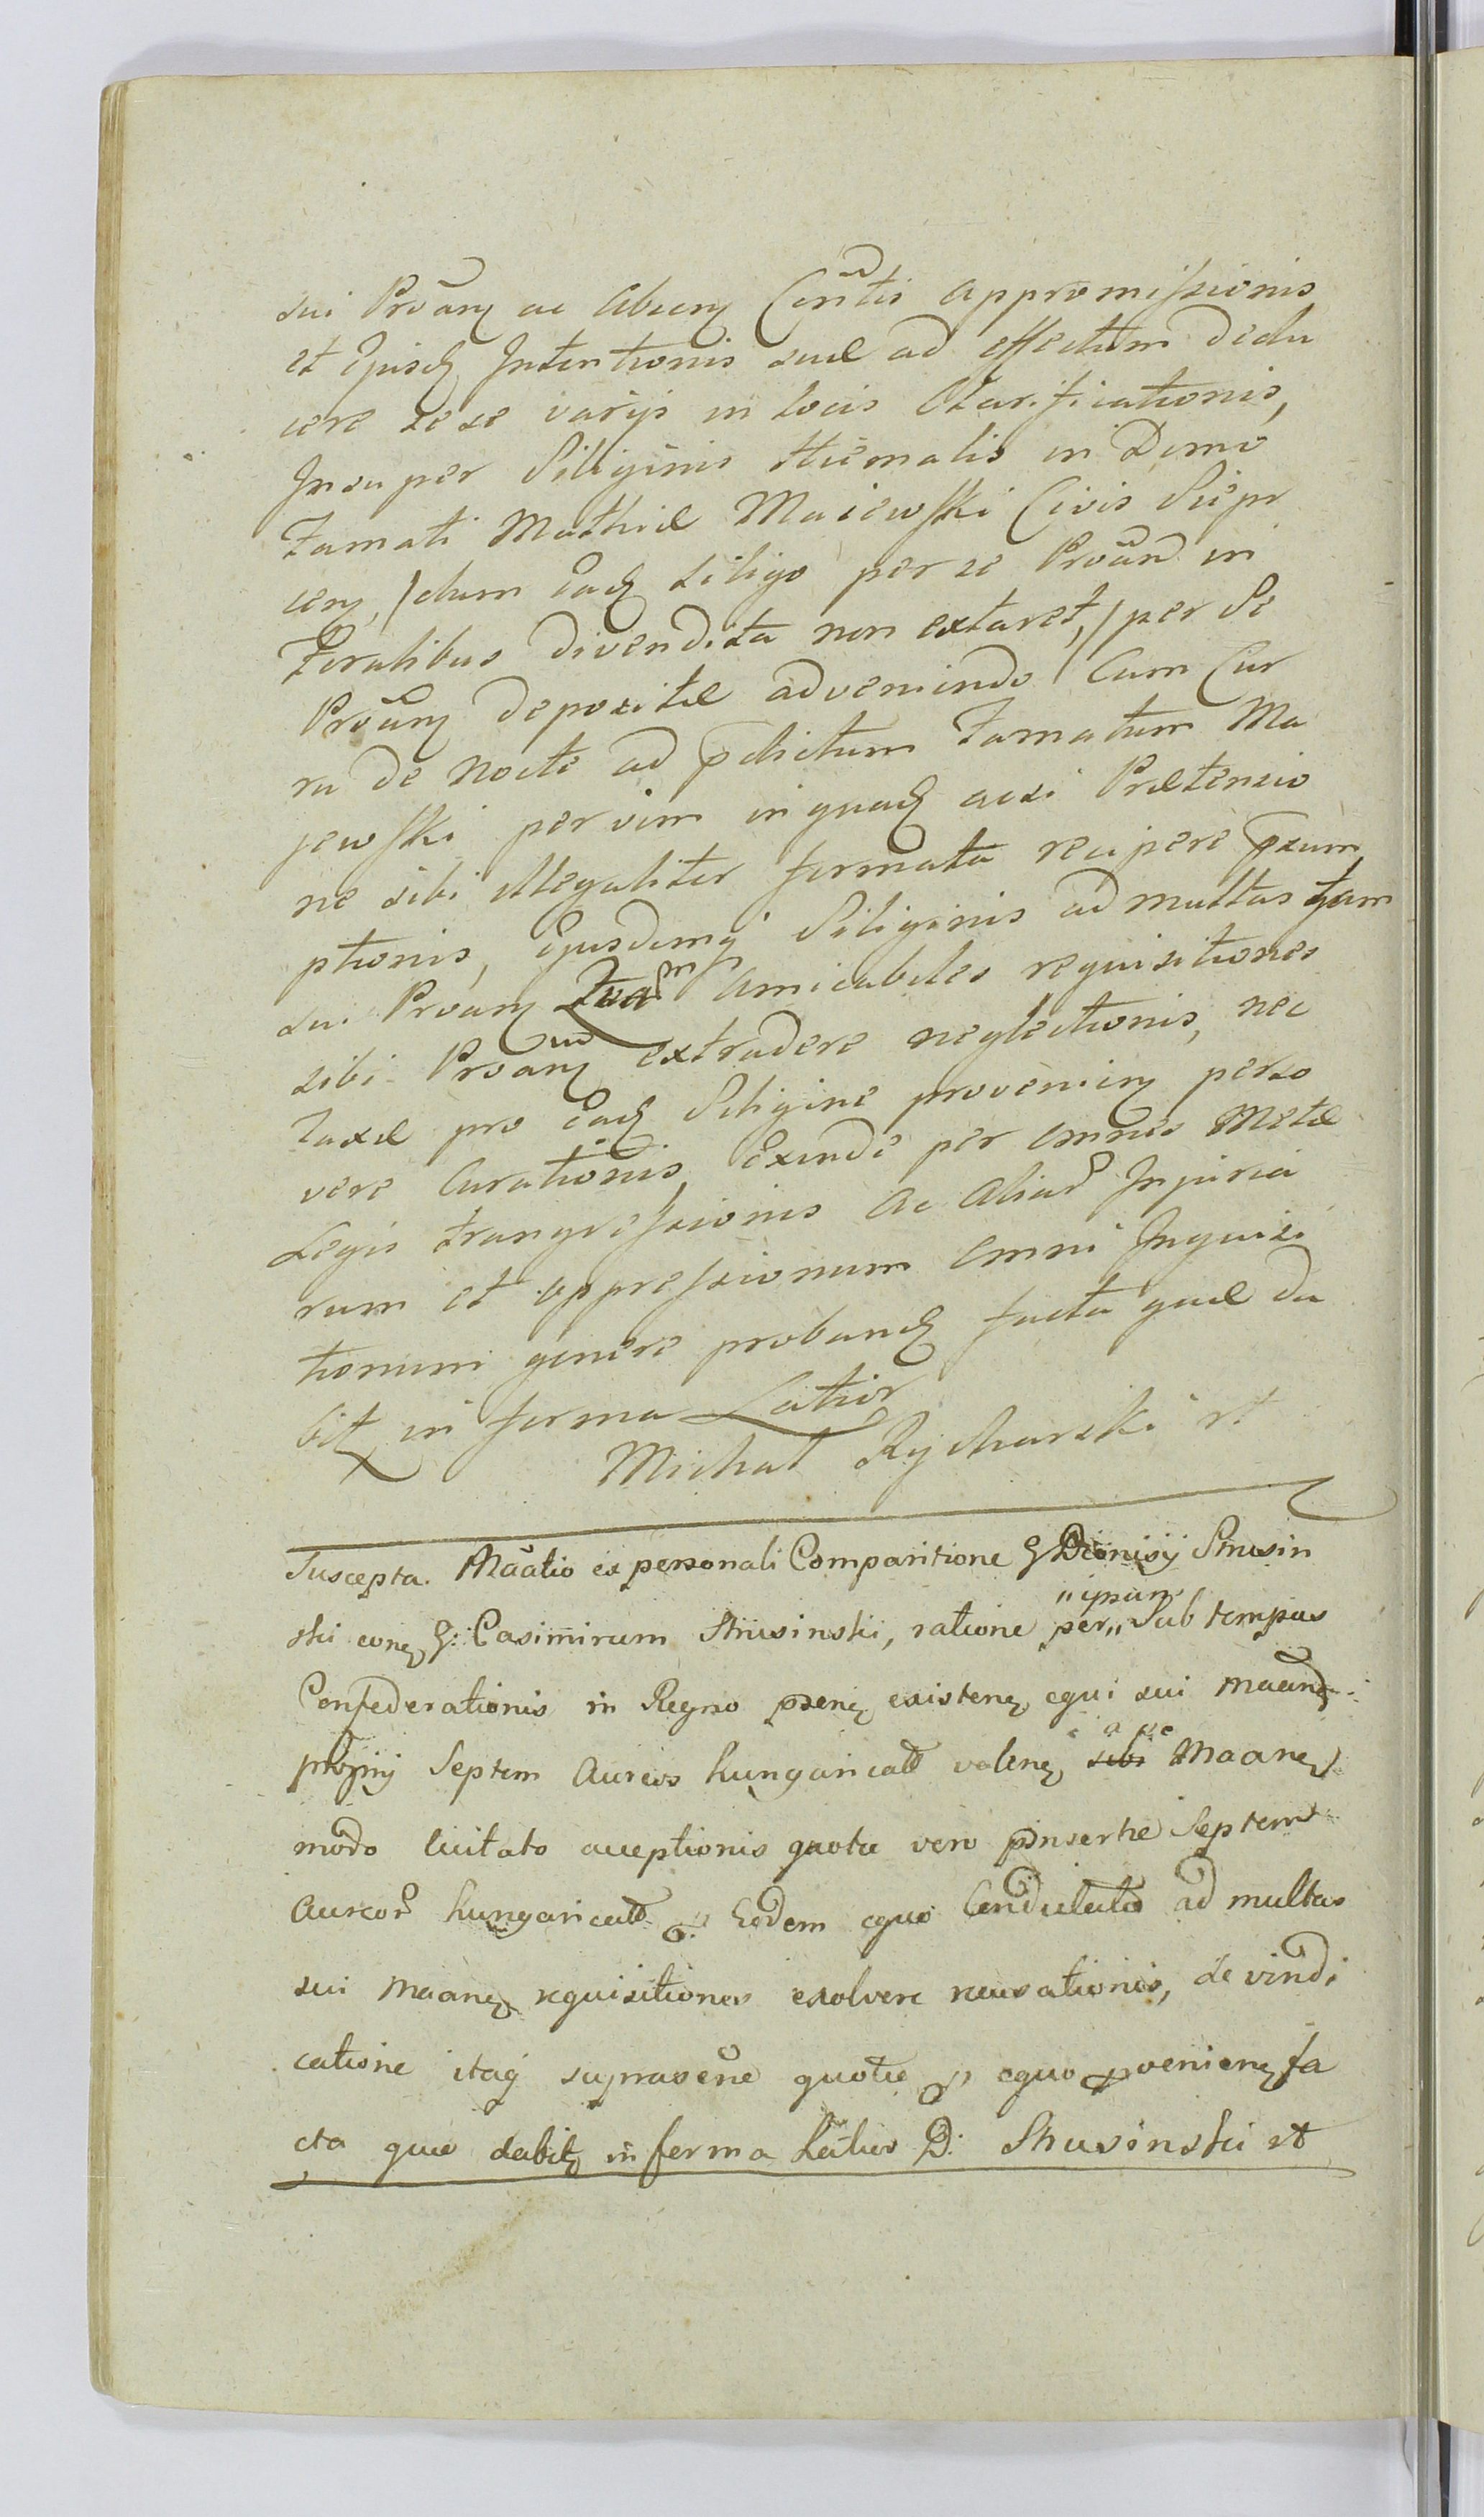 sui Proãnʒ ac Absenʒ Cõntis appromissionis
et Ejusdʒ Intentionis suæ ad effectum dedu
cere se se varijs in locis Clarificationis,
Insuper Siliginis Hiemalis in Domo
Famati Mathiæ Maiewski Civis Siepr
cenʒ, /dum eadʒ siligo per se Proãnd in
Foralibus divendita non extaret,/ per Se
Proãnʒ depositæ adveniendo Cum Cur
ru de nocte ad pdictum Famatum Ma
jewski per vim in quadʒ acsi Prætensio
ne sibi illegaliter formata recipere præsum
ptionis, Ejusdemqʒ Siliginis ad multas tam
su. Proanʒ quam amicabiles requisitiones
sibi Proãnʒ extradere neglectionis, nec
taxæ pro eadʒ Siligine provenienʒ perso
vere Curationis, Exinde per omnes Metæ
Legis transgressionis ac aliar Injuria
rum et oppressionum omni Inquisi
tionum genere probandʒ facta quæ da
bitʒ in forma Latior
Michał Rycharski rt
Suscepta. Maãtio ex personali Comparitione G Dionisij Strusin
ski conʒ G: Casimirum Strusinski, ratione per „ipsum„ Sub tempus
Confederationis in Regno psenʒ existenʒ equi sui maanʒ
proprij Septem Aureos hungaricales valenʒ sibi a se Maanʒ
modo licitato acceptionis quotæ vero pinsertæ Septem
Aureor hungaricalʒ p Eodem equo ad multas
sui maanʒ requisitiones exolvere recusationis, de vindi
catione itaqʒ suprasẽne quotæ p equo pvenienʒ fa
cta quæ dabitʒ in forma Latius D: Strusinski rt